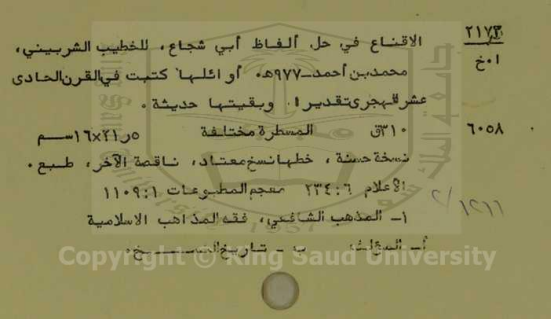 ٢١٧٣
ا ٠ خ
الاقناع في حل ألفاظ أبي شجاع، للخطيب الشربيني،
محمد بن أحمد - ٩٧٧هـ. أوائلها كتبت في القرن الحادى
عشر الهجرى تقديرا، وبقيتها حديثة.
٦٠٥٨
٣١٠ق المسطرة مختلفة ٥ر٢١×١٦سم
نسخة حسنة، خطها نسخ معتاد، ناقصة الآخر، طبع.
الأعلام ٦: ٢٣٤ معجم المطبوعات ١: ١١٠٩
١- المذهب الشافعي، فقه المذاهب الاسلامية
أ- المؤلف ب - تاريخ النسخ.
Copyright © King Saud University
1957